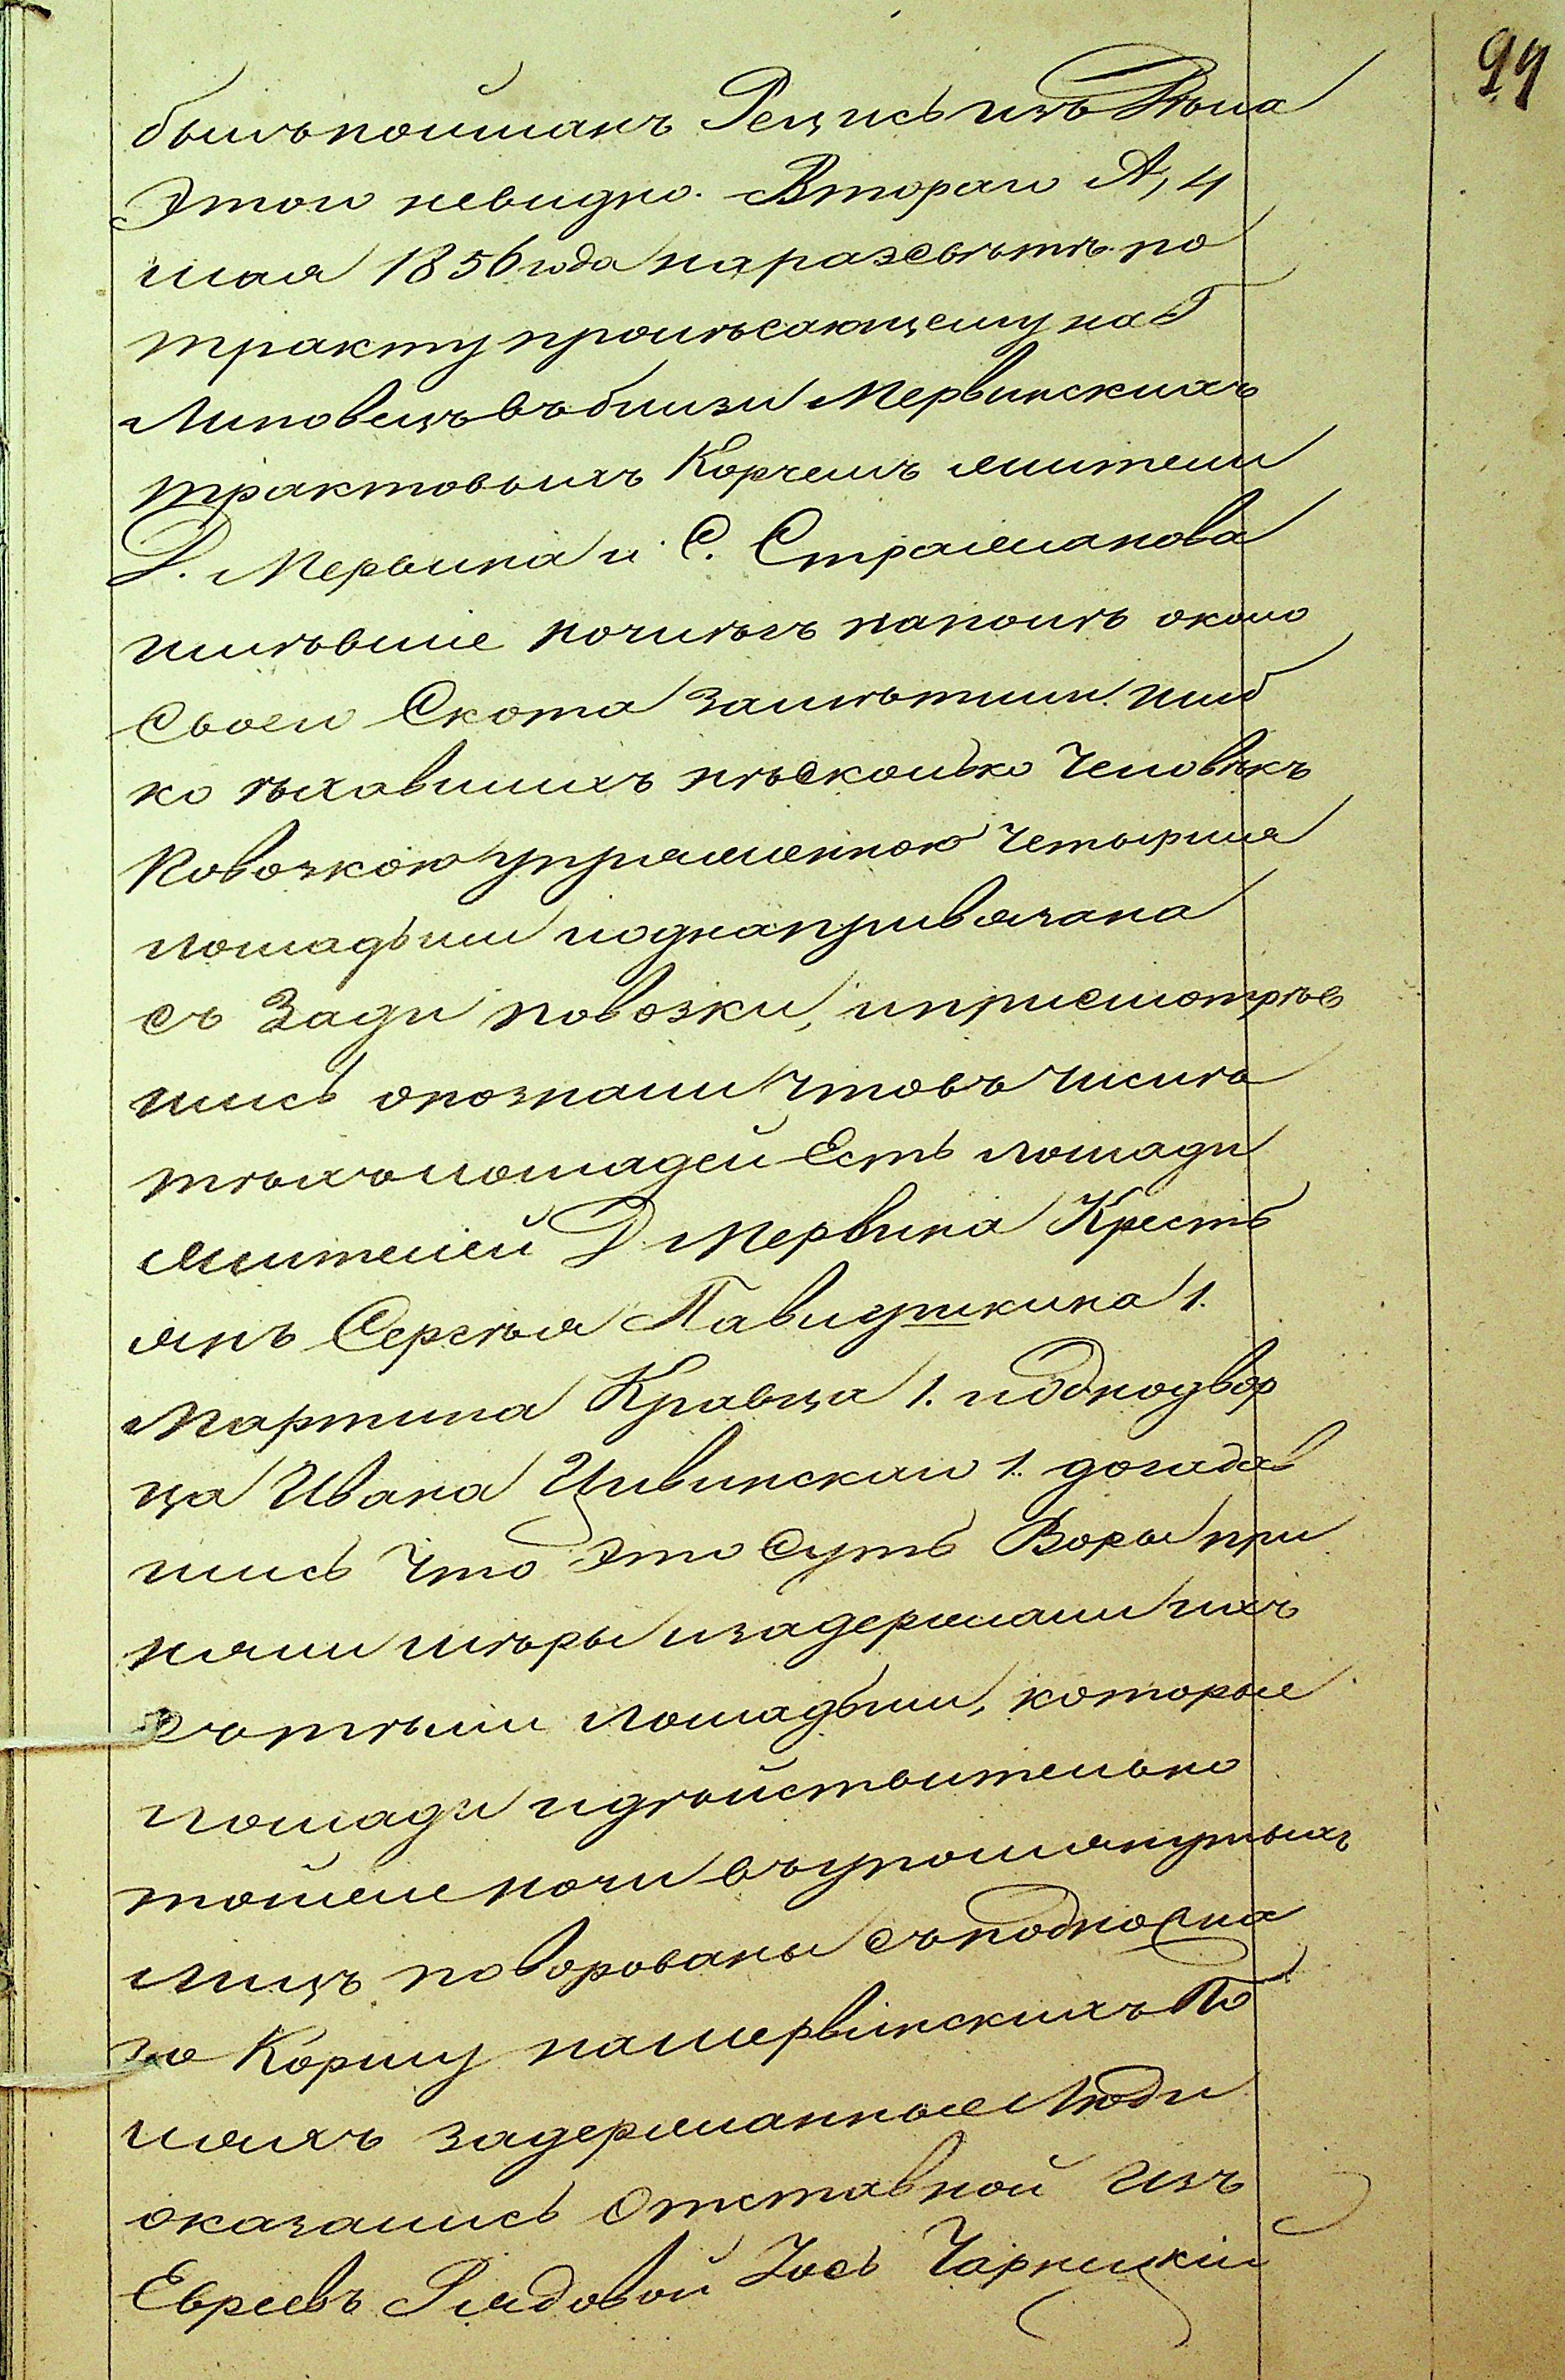 99
былъ пойманъ Рецись изъ Дѣла
этого невидно. Втораго А, 4
мая 1856 года на разсвѣтѣ по
тракту пролѣсающему на г
Липовецъ въ близи Мервинскихъ
трактовыхъ Корчемъ жители
Д. Мервина и С. Стражанова
имѣвшіе ночлегъ наполѣ около
своего Скота замѣтили шиб
ко ѣхавшихъ нѣсколько Человѣкъ
Повозкою упряженною Четырма
лошадьми и одна привязана
съ Зади повозки, и присмотрѣв
шись опознали что въ числѣ
тѣхъ лошадей Есть лошади
жителей Д Мервина Кресть
янъ Сергѣя Павлушкина 1.
Мартина Кравца 1. и Однодвор
ца Ивана Цивинскаго 1. догадав
шись что это суть Воры при
няли мѣры и задержали ихъ
съ тѣми лошадьми, которые
лошади и дѣйствительно
тойже ночи въ упомянутыхъ
лицъ поворованы съ подножна
го Корму на мервинскихъ По
ляхъ задержанные Люди
оказались Отставной изъ
Евреевъ Рядовой Іось Чарнецкій